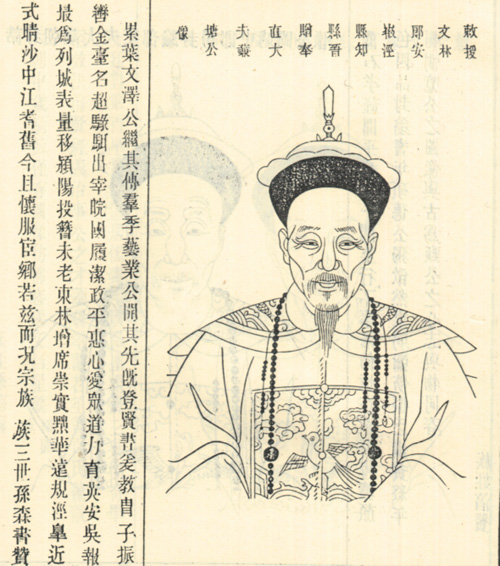 敕授
文林
郎安
徽涇
縣知
縣晉
贈奉
直大
夫
塘公
像
累葉文澤公繼其傳羣季藝業公開其先旣登賢書爰教胄子振
響金臺名超騄駬出宰皖國履潔政平惠心愛眾道力育英安吳報
最爲列城表量移潁陽投簪未老東林增席崇實黜華遠規涇皋近
式晴沙中江耆舊今且懷服宦鄉若茲而況宗族 族三世孫森書贊